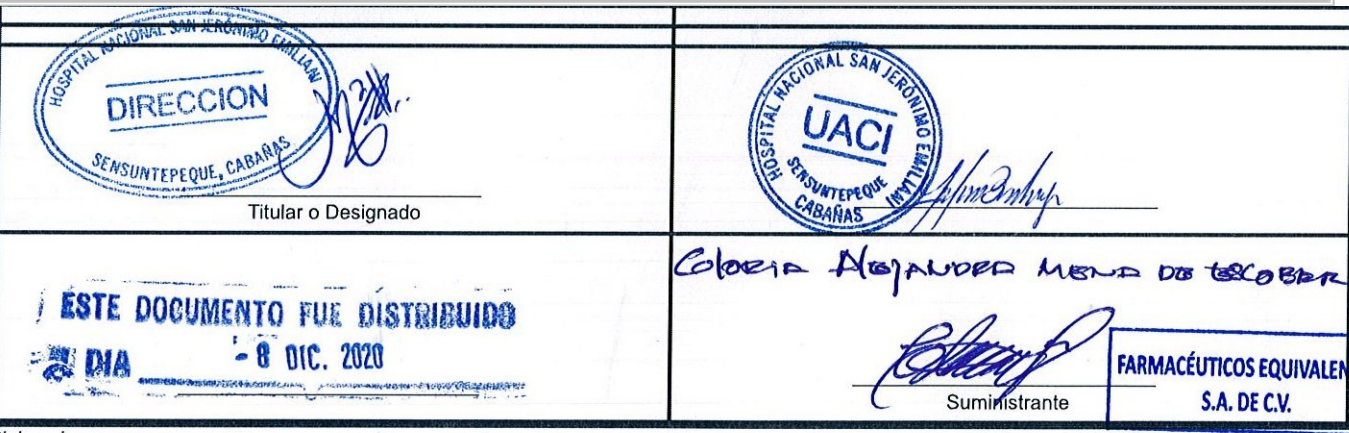 HOSPITAL NACIONAL SAN JERÓNIMO EMILIANI
DIRECCION
SENSUNTEPEQUE, CABAÑAS
Titular o Designado
HOSPITAL NACIONAL SAN JERÓNIMO EMILIANI
UACI
SENSUNTEPEQUE
CABAÑAS
ESTE DOCUMENTO FUE DISTRIBUIDO
DIA - 8 DIC. 2020
Alejandra Mena de Escobar
Suministrante
FARMACÉUTICOS EQUIVALEN
S.A. DE C.V.